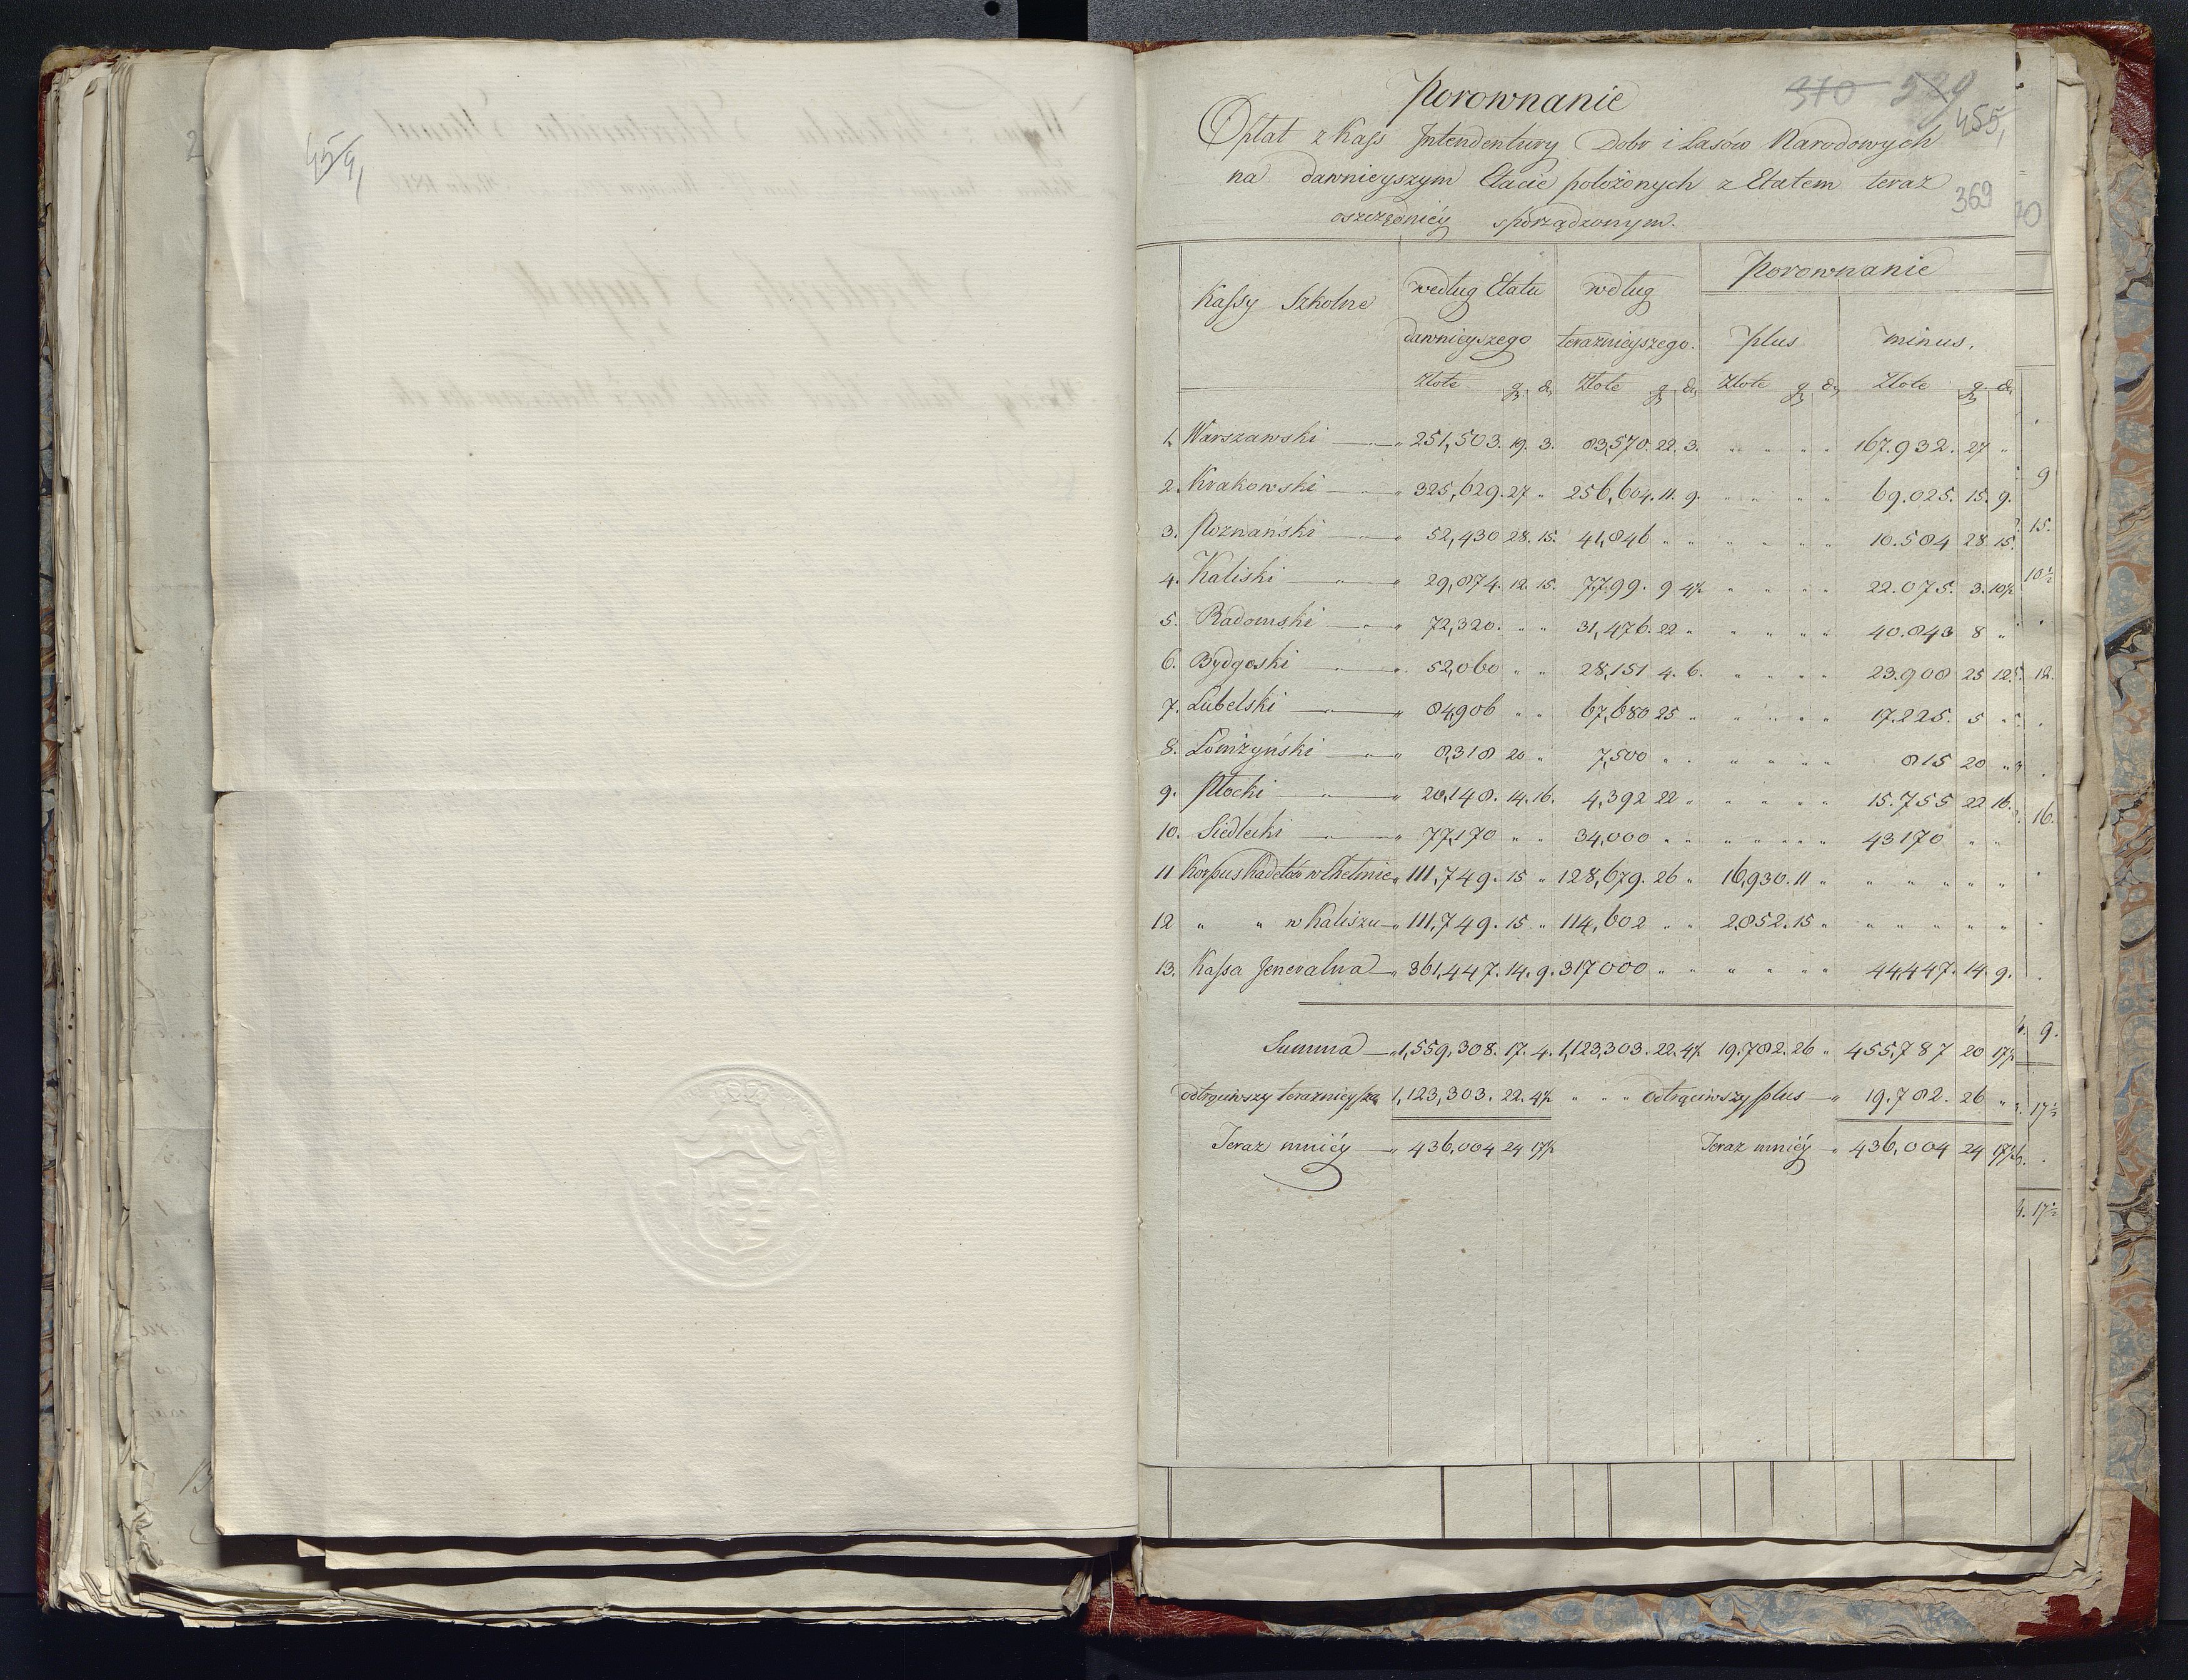 459,
Porownanie
370 529
455,
Opłat z Kass Intendentury Dobr i Lasów Narodowych
na dawnieyszym Etacie położonych z Etatem teraz
369
oszczędniéy sporządzonym.
Kassy Szkolne według Etatu dawnieyszego według teraznieyszego. Porownanie plus minus.
Złote gr. d. Złote gr. d. Złote gr. d. Złote gr. d.
1. Warszawski — " 251,503. 19. 3. 83,570. 22. 3. " " " " 167.932. 27 "
2. Krakowski — " 325,629. 27 " 256,604. 11. 9. " " " " 69.025. 15. 9.
3. Poznański — " 52,430 28. 15. 41,846 " " " " " " 10.584 28 15.
4. Kaliski — " 29,874. 12. 15. 7,799. 9 4½ " " " " 22.075. 3. 10½
5. Radomski — " 72,320. " " 31,476. 22 " " " " " 40.843 8 "
6. Bydgoski — " 52,060 " " 28,151 4. 6. " " " " 23.908 25 12.
7. Lubelski — " 84,906 " " 67,680 25 " " " " " 17.225. 5 "
8. Łomżyński — " 8,318 20 " 7,500 " " " " " " 815 20 "
9. Płocki — " 20,148. 14. 16. 4,392 22 " " " " " 15.755 22 16.
10. Siedlecki — " 77,170 " " 34,000 " " " " " " 43170 " "
11 Korpus Kadetów w Chełmie " 111,749. 15 " 128,679. 26 " 16,930. 11 " " " " "
12 " " w Kaliszu — " 111,749. 15 " 114,602 " " 2,852. 15 " " " " "
13. Kassa Jeneralna — " 361,447. 14. 9. 317000 " " " " " " 44,447. 14. 9.
Summa — " 1,559,308. 17. 4. 1,123,303. 22. 4½ 19.782. 26 " 455,787 20 17½
odtrąciwszy teraznieysza 1,123,303. 22. 4½ " " " Odtrąciwszy plus — " 19.782. 26 "
Teraz mniéy — " 436,004 24 17½ Teraz mniéy " 436,004 24 17½